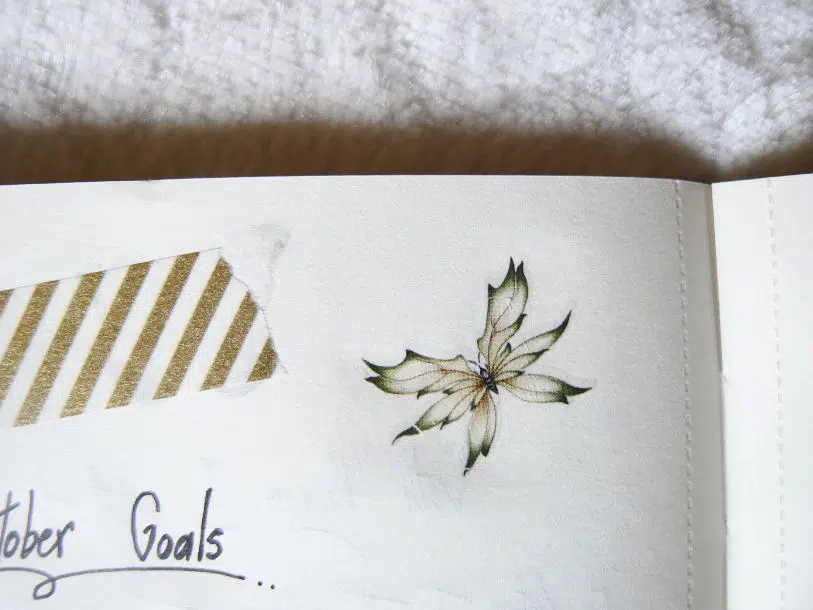 tober Goals